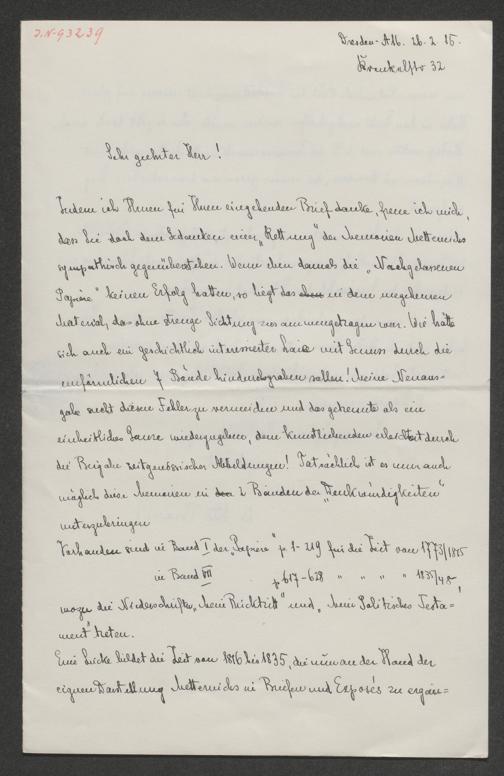 J.N. 93239
Dresden-A16. 26.2.15.
32
Sehr geehrter Herr!
Indem ich Ihnen für Ihren eingehenden Brief danke, freue ich mich,
dass Sie doch dem Gedanken einer „Rettung" der Memoiren Metternichs
sympathisch gegenüberstehen. Wenn eben damals die „Nachgelassenen
Papiere" keinen Erfolg hatten, so liegt das in dem ungeheuren
Material, das ohne strenge Sichtung zusammengetragen war. Wie hätte
sich auch ein geschichtlich interessierter Laie mit Genuss durch die
unförmlichen 7 Bände hindurchgraben sollen! Meine Neuaus-
gabe sucht diesen Fehler zu vermeiden und das getrennte als ein
einheitliches Ganze wiederzugeben, dem erleichtert durch
die Beigabe zeitgenössischer Abbildungen! Tatsächlich ist es nun auch
möglich diese Memoiren in 2 Bänden der „Denkwürdigkeiten"
unterzubringen
Vorhanden sind in Band I der „Papiere" p 1-219 für die Zeit von 1773/1815
in Band VII p 617-628 " " " " 1835/48
wozu die Niederschriften „Mein Rücktritt" und „Mein Politisches Testa=
ment" treten.
Eine Lücke bildet die Zeit von 1816 bis 1835, die nun an der Hand der
eignen Darstellung Metternichs in Briefen und Exposés zu ergän=